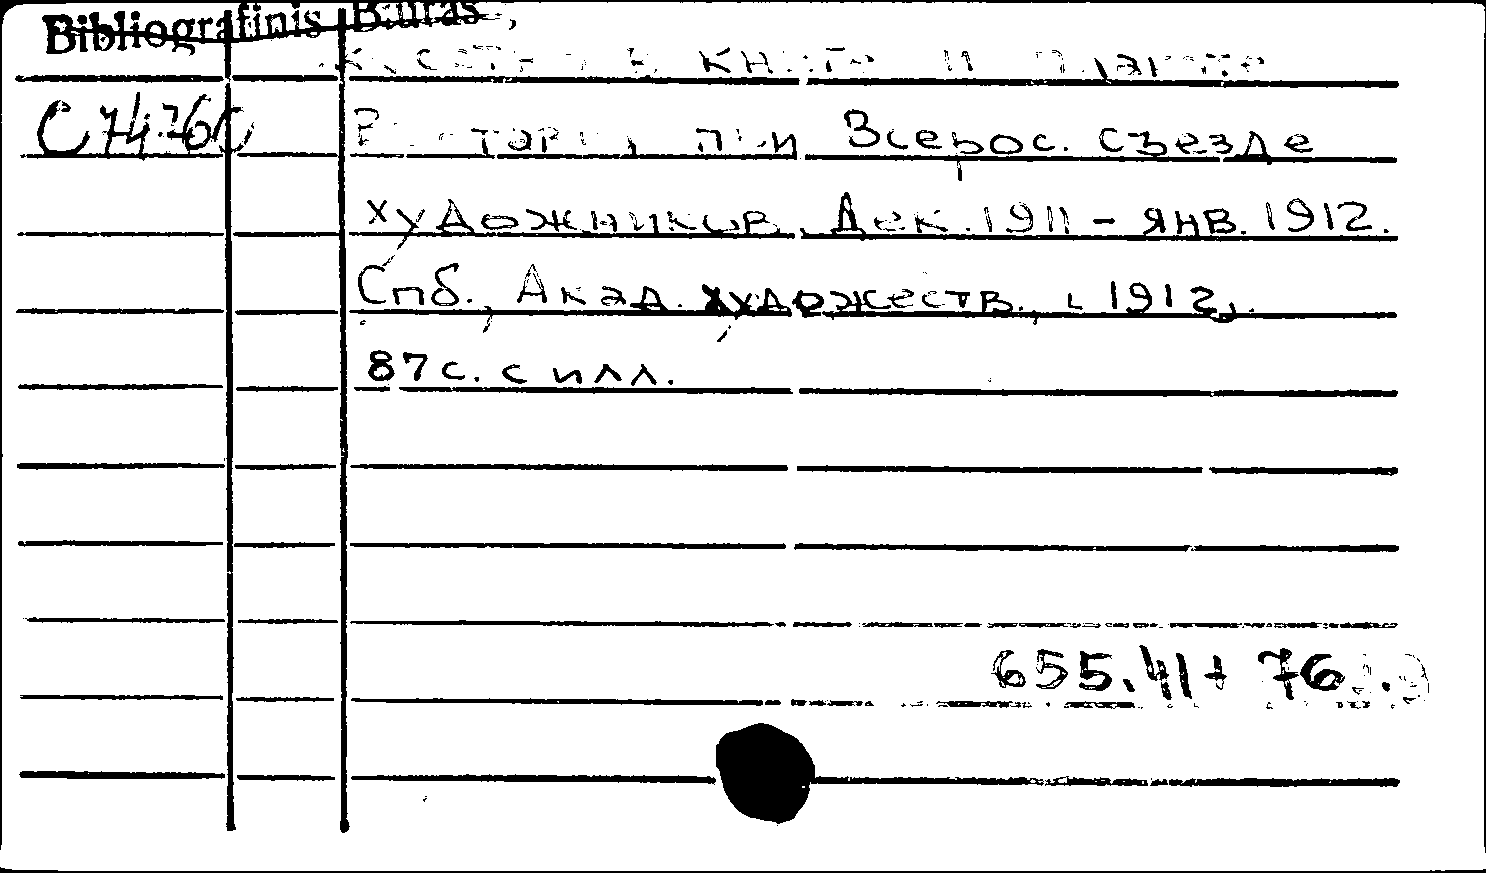 Bibliografinis Biuras,
в книге и плакате
С 74.760
при Всерос. съезде
художников. Дек. 1911 - янв. 1912.
Спб., Акад. художеств., 1912.
87 с. с илл.
655.41+